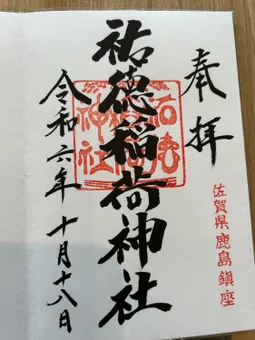 奉拝
佐賀県鹿島鎮座
祐徳稲荷神社
令和六年十月十八日